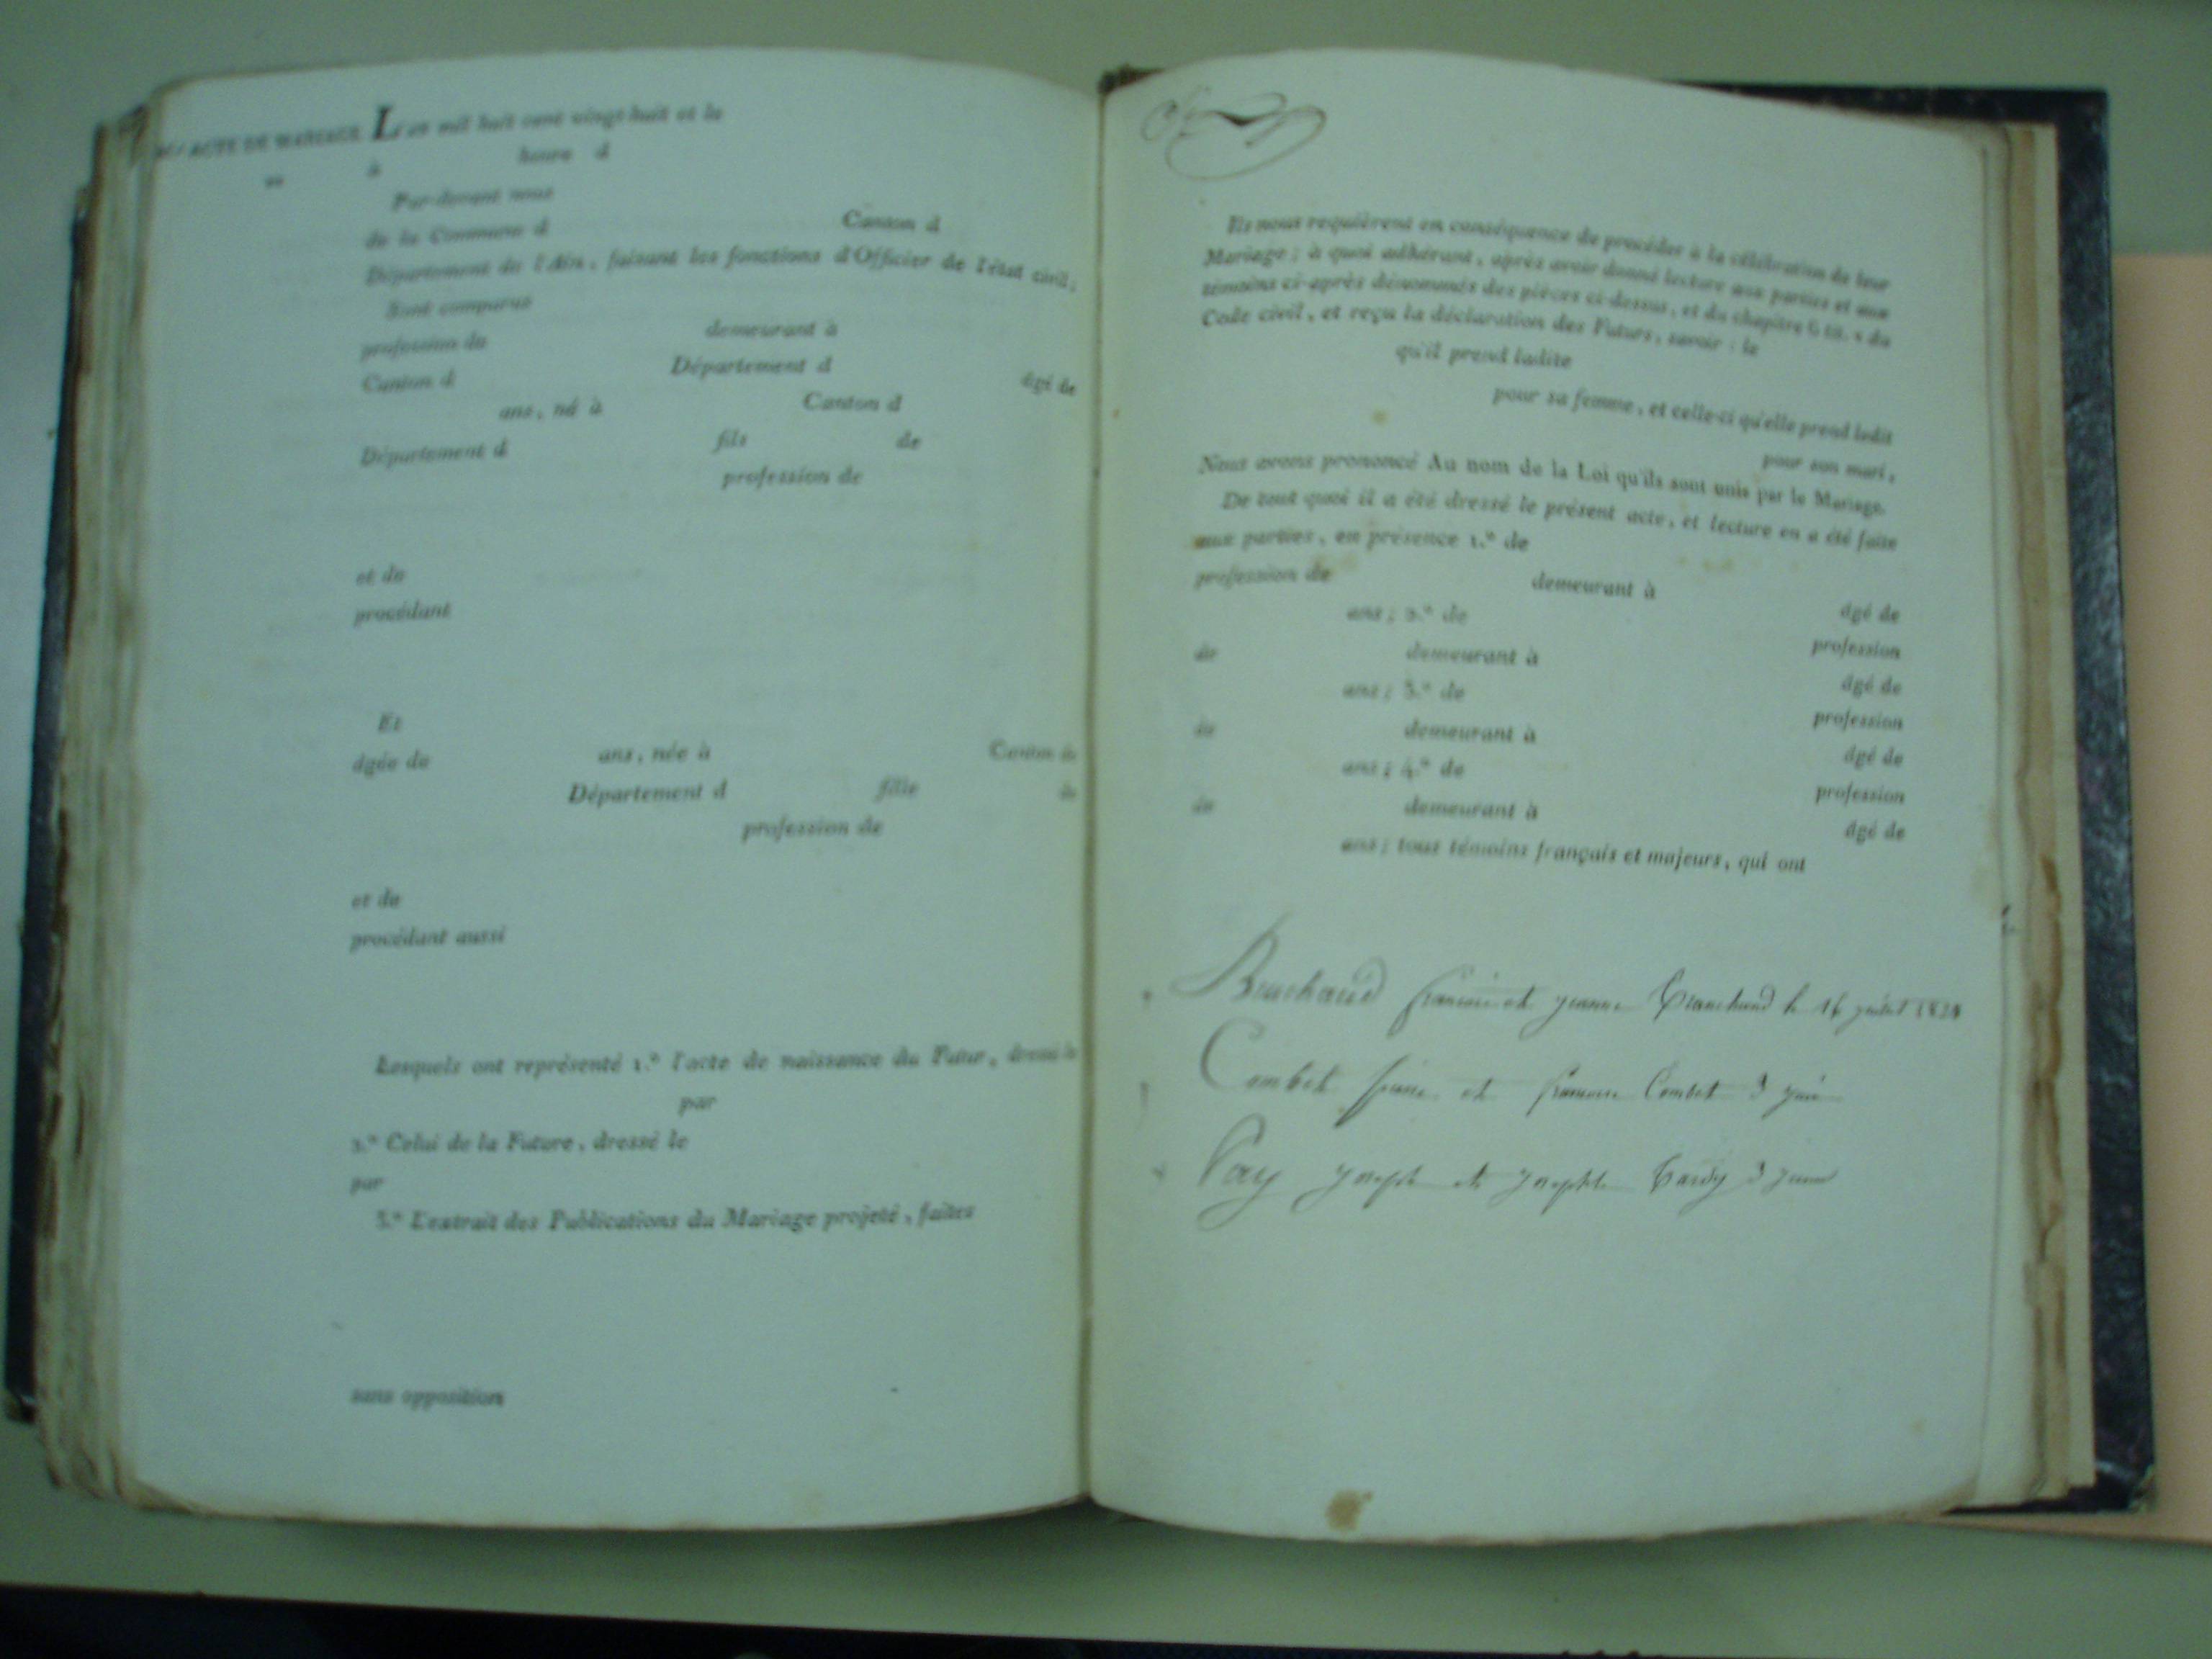 ACTE DE MARIAGE L'an mil huit cent vingt-huit et le
à heure d
Par-devant nous
de la Commune d Canton d
Département de l'Ain, faisant les fonctions d'Officier de l'état civil,
Sont comparus
profession de demeurant à
Canton d Département d âgé de
ans, né à Canton d
Département d fils de
profession de
et de
procédant
Et
âgée de ans, née à Canton de
Département d fille de
profession de
et de
procédant aussi
Lesquels ont représenté 1.° l'acte de naissance du Futur, dressé le
par
2.° Celui de la Future, dressé le
par
3.° L'extrait des Publications du Mariage projeté, faites
sans opposition
Ils nous requièrent en conséquence de procéder à la célébration de leur
Mariage ; à quoi adhérant, après avoir donné lecture aux parties et aux
témoins ci-après dénommés des pièces ci-dessus, et du chapitre 6 tit. 5 du
Code civil, et reçu la déclaration des Futurs, savoir : le
qu'il prend ladite
pour sa femme, et celle-ci qu'elle prend ledit
pour son mari,
Nous avons prononcé Au nom de la Loi qu'ils sont unis par le Mariage.
De tout quoi il a été dressé le présent acte, et lecture en a été faite
aux parties, en présence 1.° de
profession de demeurant à âgé de
ans ; 2.° de profession
de demeurant à âgé de
ans ; 3.° de profession
de demeurant à âgé de
ans ; 4.° de profession
de demeurant à âgé de
ans ; tous témoins français et majeurs, qui ont
et jeanne Blanchard le 16 juillet
Combet et Combet 3
Pay Joseph et Josephte Tardy 3